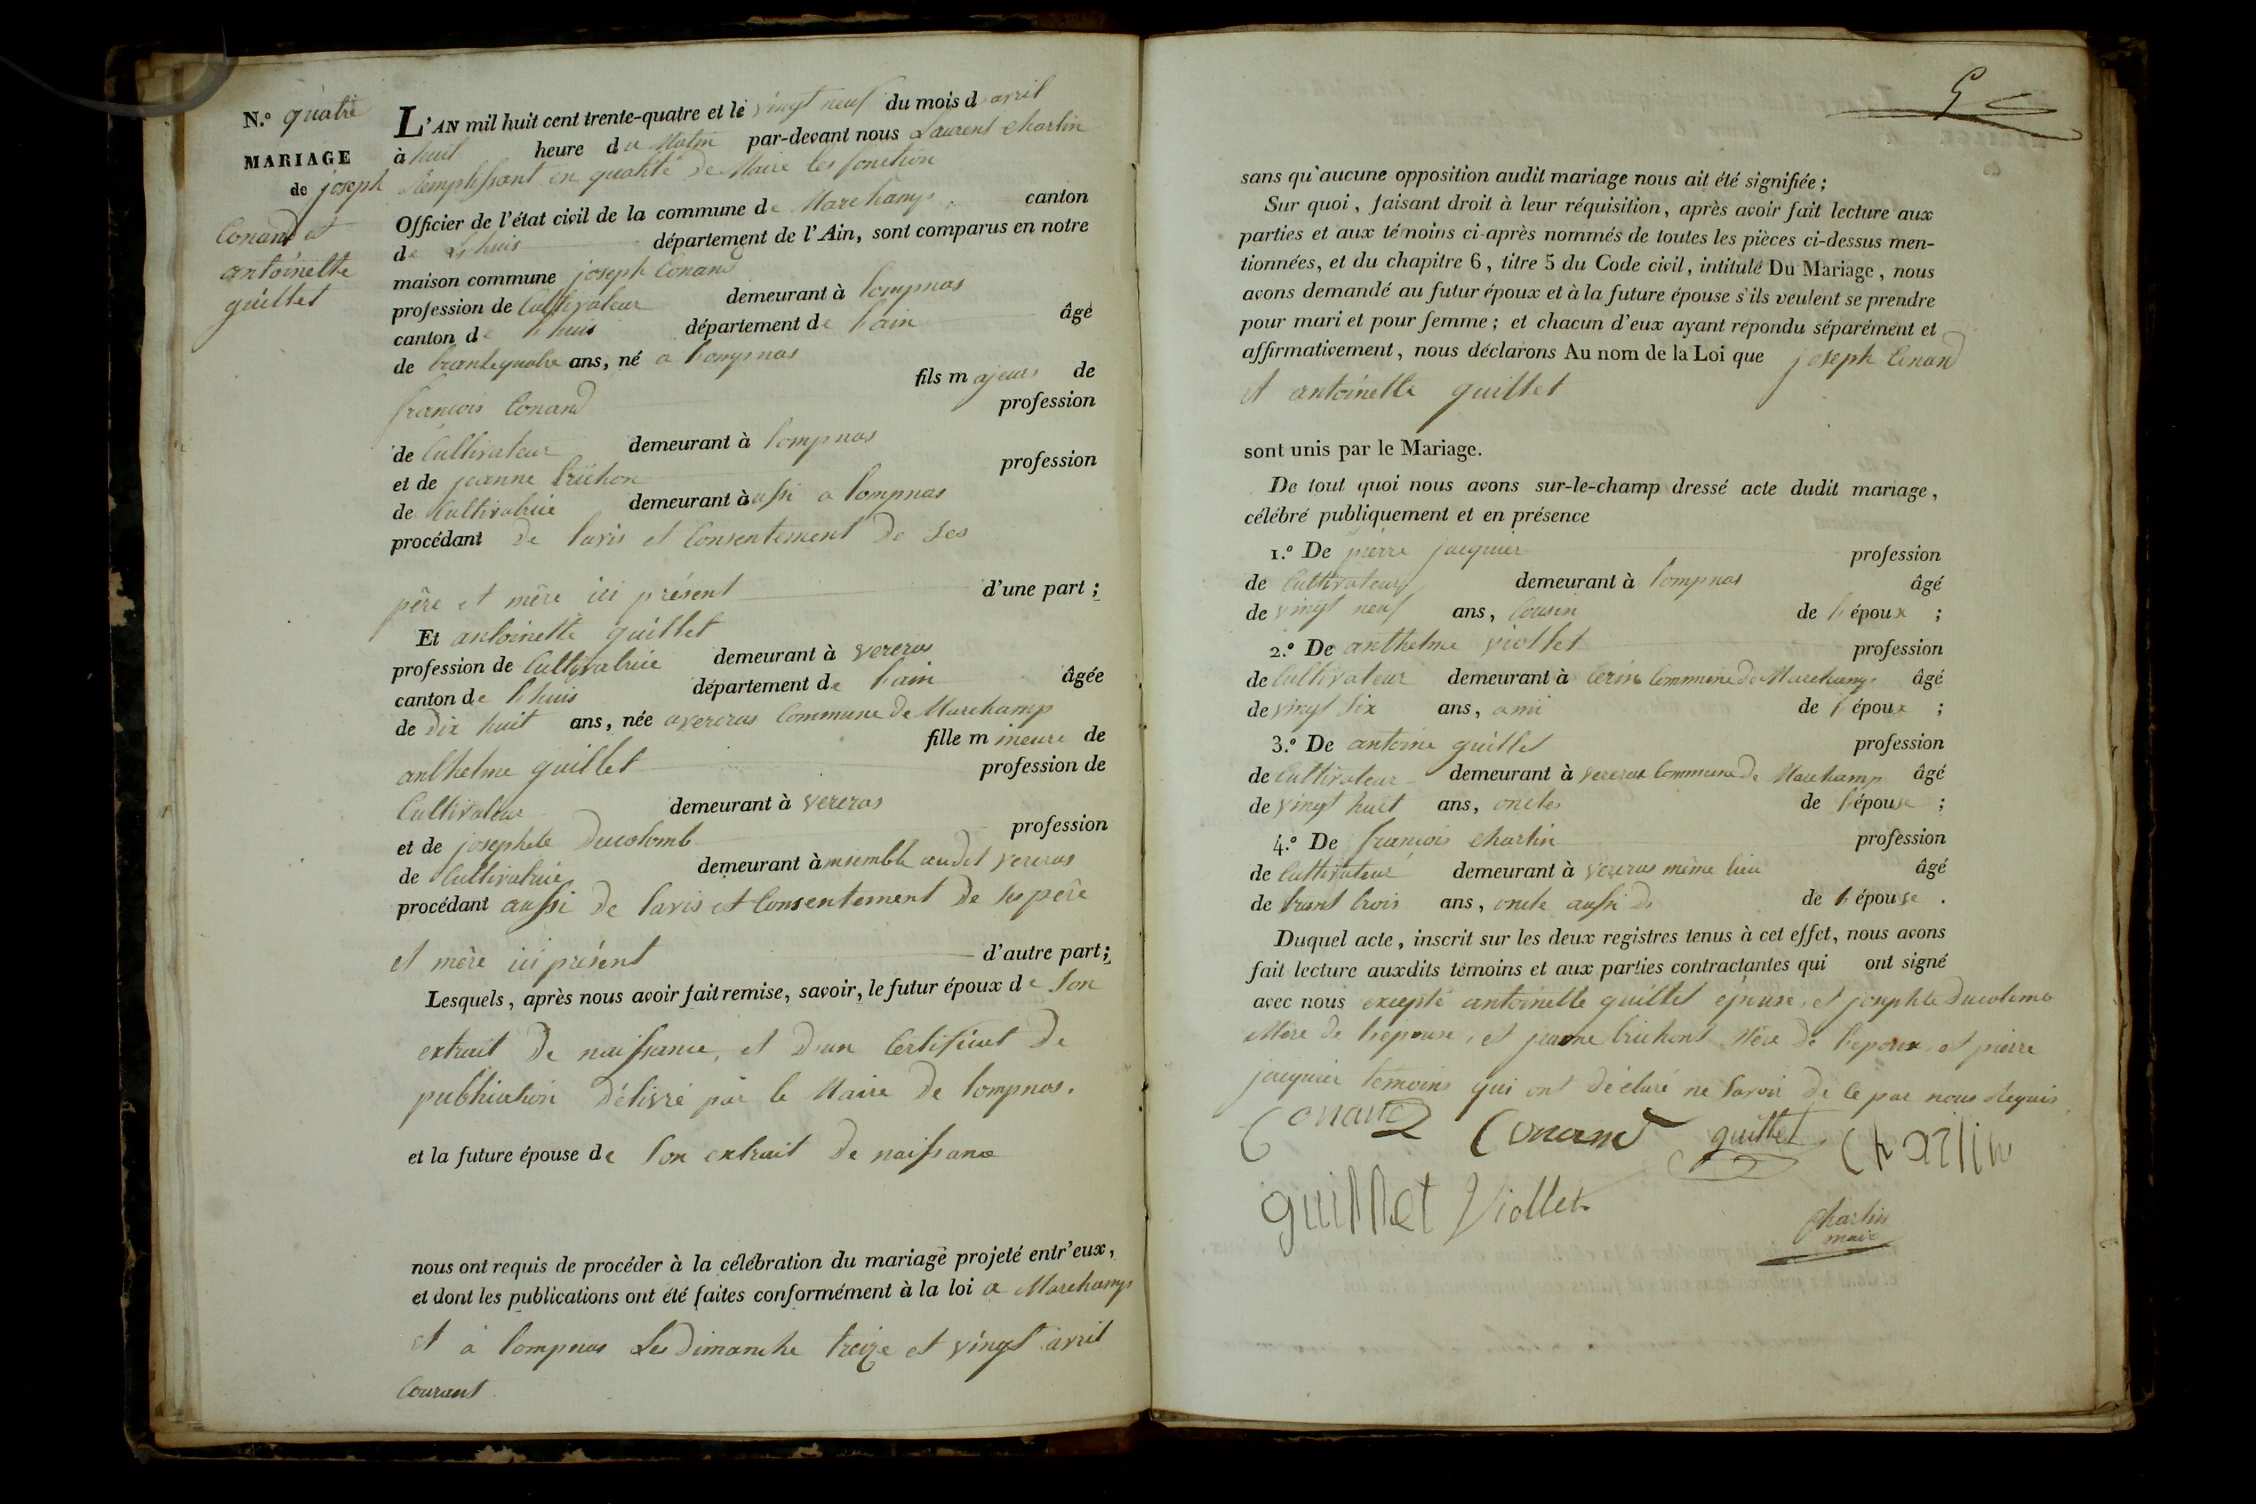 N.o quatre
MARIAGE
de joseph
Conand et
antoinette
guillet
L'AN mil huit cent trente-quatre et le vingt neuf du mois d avril
à huit heure du Matin par-devant nous Laurent Charlin
Remplissant en qualité de Maire les fonction
Officier de l'état civil de la commune de Marchamp, canton
de Lhuis département de l'Ain, sont comparus en notre
maison commune joseph Conand
profession de Cultivateur demeurant à lompnas
canton de lhuis département de lain âgé
de trantequatre ans, né a lompnas
fils majeur de
francois Conand profession
de Cultivateur demeurant à lompnas
et de jeanne trichon profession
de Cultivatrice demeurant àussi a lompnas
procédant de lavis et Consentement de ses
père et mère ici présent d'une part ;
Et antoinette guillet
profession de Cultivatrice demeurant à vereras
canton de lhuis département de lain âgée
de dix huit ans, née a vereras Commune de Marchamp
fille mineure de
anthelme guillet profession de
Cultivateur demeurant à vereras
et de josephete Ducolomb profession
de Cultivatrice demeurant à ensemble audit vereras
procédant aussi de lavis et Consentement de ses père
et mère ici présent d'autre part ;
Lesquels, après nous avoir fait remise, savoir, le futur époux de son
extrait de naissance, et d'un Certificat de
publication délivré par le Maire de lompnas.
et la future épouse de son extrait de naissance
nous ont requis de procéder à la célébration du mariage projeté entr'eux,
et dont les publications ont été faites conformément à la loi a Marchamp
et à lompnas Les dimanche treize et vingt avril
Courant
sans qu'aucune opposition audit mariage nous ait été signifiée ;
Sur quoi, faisant droit à leur réquisition, après avoir fait lecture aux
parties et aux témoins ci-après nommés de toutes les pièces ci-dessus men-
tionnées, et du chapitre 6, titre 5 du Code civil, intitulé Du Mariage, nous
avons demandé au futur époux et à la future épouse s'ils veulent se prendre
pour mari et pour femme ; et chacun d'eux ayant répondu séparément et
affirmativement, nous déclarons Au nom de la Loi que joseph Conand
et antoinette guillet
sont unis par le Mariage.
De tout quoi nous avons sur-le-champ dressé acte dudit mariage,
célébré publiquement et en présence
1.o De pierre jacquier profession
de Cultivateur demeurant à lompnas âgé
de vingt neuf ans, Cousin de lépoux ;
2.o De anthelme viollet profession
de Cultivateur demeurant à Cerin Commune de Marchamp âgé
de vingt six ans, ami de lépoux ;
3.o De antoine guillet profession
de Cultivateur demeurant à vereras Commune de Marchamp âgé
de vingt huit ans, oncles de lépouse ;
4.o De francois Charlin profession
de Cultivateur demeurant à vereras même lieu âgé
de trant trois ans, oncle aussi de lépouse .
Duquel acte, inscrit sur les deux registres tenus à cet effet, nous avons
fait lecture auxdits témoins et aux parties contractantes qui ont signé
avec nous excepté antoinette guillet épouse, et josephte Ducolomb
Mère de lepouse, et jeanne trichont Mère de lepoux, et pierre
jacquier temoins qui ont déclaré ne savoir de ce par nous Requis
Conand Conand guillet Charlin
guillet Viollet
Charlin
maire